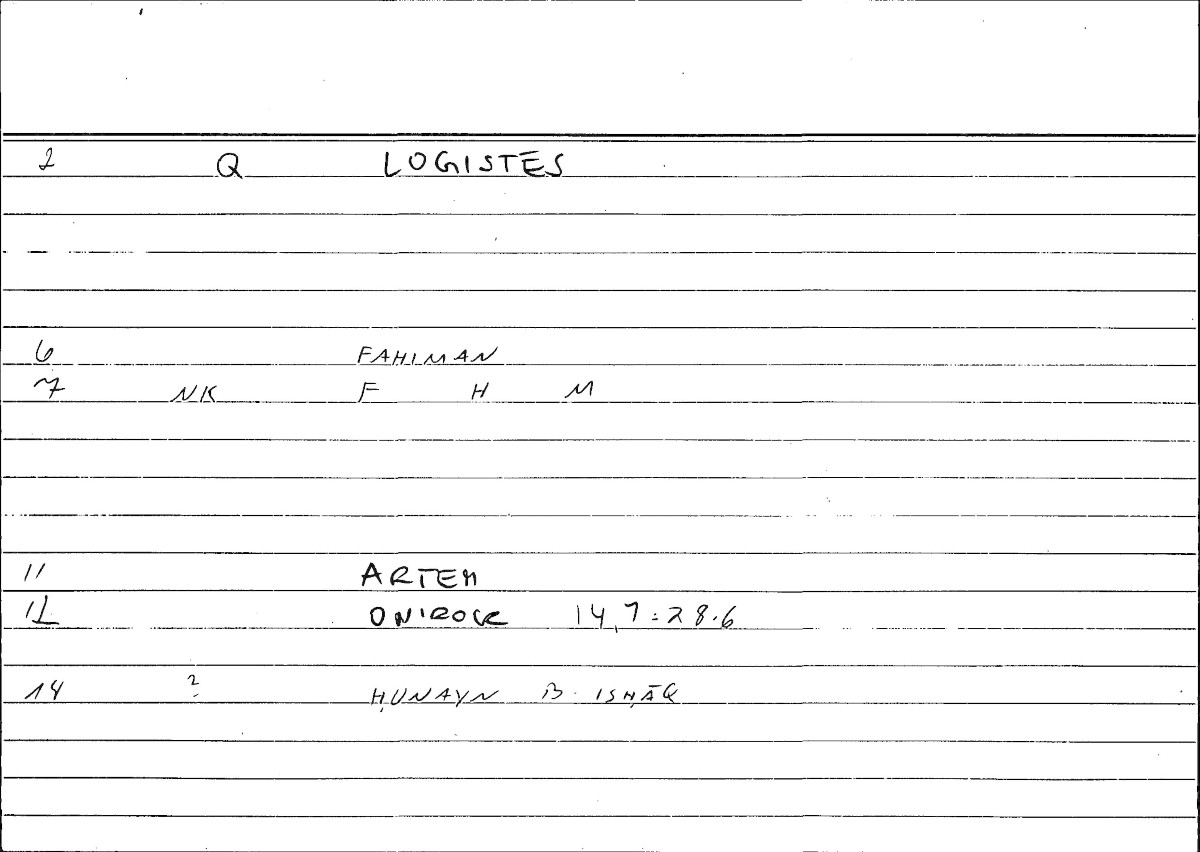 2 Q LOGISTĒS
6 FAHIMAN
7 NK F H M
11 ARTEM
12 ONIROCR 14,7 = 28.6
14 ? ḤUNAYN B. ISḤĀQ